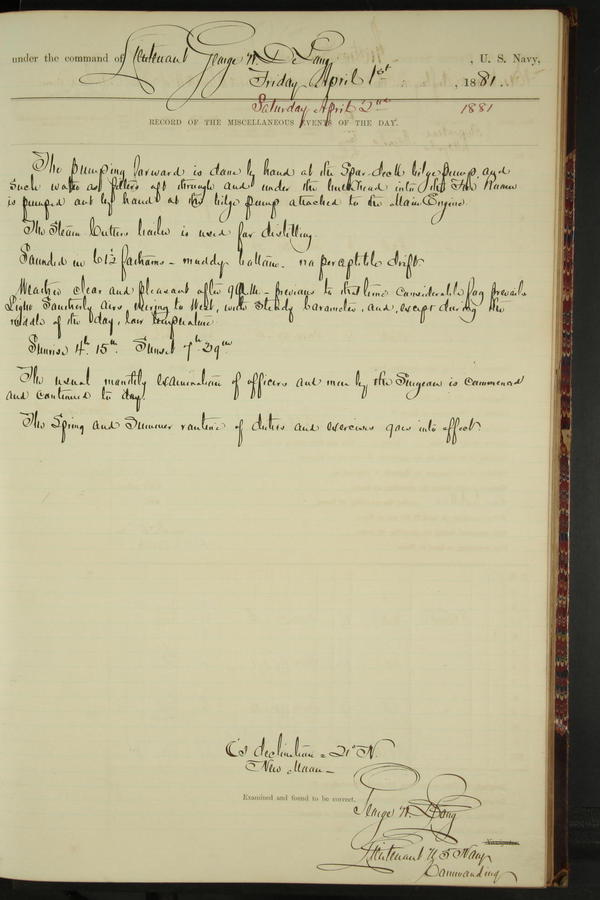 under the command of Lieutenant George W. De Long, U. S. Navy,
Friday April 1st, 1881.
Saturday April 2nd 1881
RECORD OF THE MISCELLANEOUS EVENTS OF THE DAY.
The pumping forward is done by hand at the Spar-deck bilge pump, and
such water as filters aft through and under the bulkhead into the Fire Room
is pumped out by hand at the bilge pump attached to the Main Engine.
The Steam Cutters boiler is used for distilling.
Sounded in 61½ fathoms - muddy bottom - no perceptible drift
Weather clear and pleasant after 9 A.M. - previous to that time considerable fog prevails
Light Southerly airs, veering to West, with steady barometer, and, except during the
middle of the day, low temperature.
Sunrise 4h 15m. Sunset 7h 29m
The usual monthly examination of officers and men by the Surgeon is commenced
and continued to day.
The Spring and Summer routine of duties and exercises goes into effect.
☾'s declination = 21° N.
New Moon -
Examined and found to be correct.
George W. De Long
Navigator.
Lieutenant U.S. Navy
Commanding